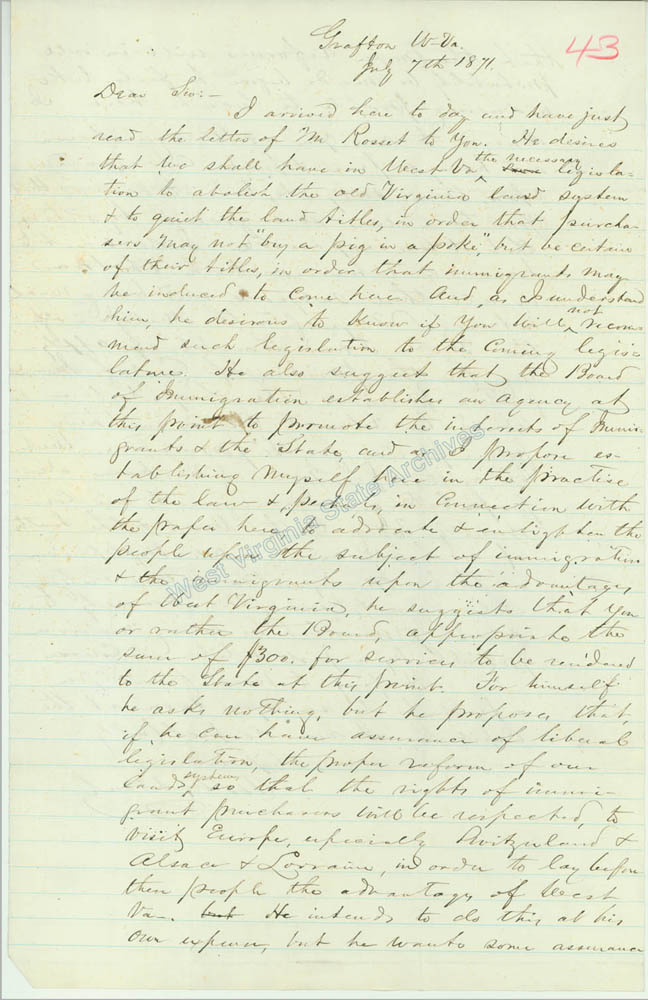 43
Grafton W-Va.
July 7th 1871.
Dear Sir:-
I arrived here to day and have just
read the letter of M Rosset to You. He desires
that we shall have in West Va the necessary legisla-
tion to abolish the old Virginia land system
& to quiet the land titles, in order that purcha-
sers may not "buy a pig in a poke", but be certain
of their titles, in order that immigrants may
be induced to come here. And, as I understand
him, he desirous to know if You will not recom
mend such legislation to the coming legis-
lature. He also suggest that the Board
of Immigration establishes an agency at
this point to promote the interests of Immi-
grants & the State, and as I propose es-
tablishing myself here in the practise
of the law & perhaps, in connection with
the paper here, to advocate & enlighten the
people upon the subject of immigration
& the immigrants upon the advantages
of West Virginia, he suggests that You
or rather the Board, appropriate the
sum of $300. for services to be rendered
to the State at this point. For himself
he asks nothing, but he proposes that,
if he can have assurance of liberal
legislation, the proper reform of our
land system, so that the rights of immi-
grant purchasers will be respected, to
visit Europe, especially Switzerland &
Alsace & Lorraine, in order to lay before
their people the advantages of West
Va. but He intends to do this at his
own expense, but he wants some assurance
West Virginia State Archives